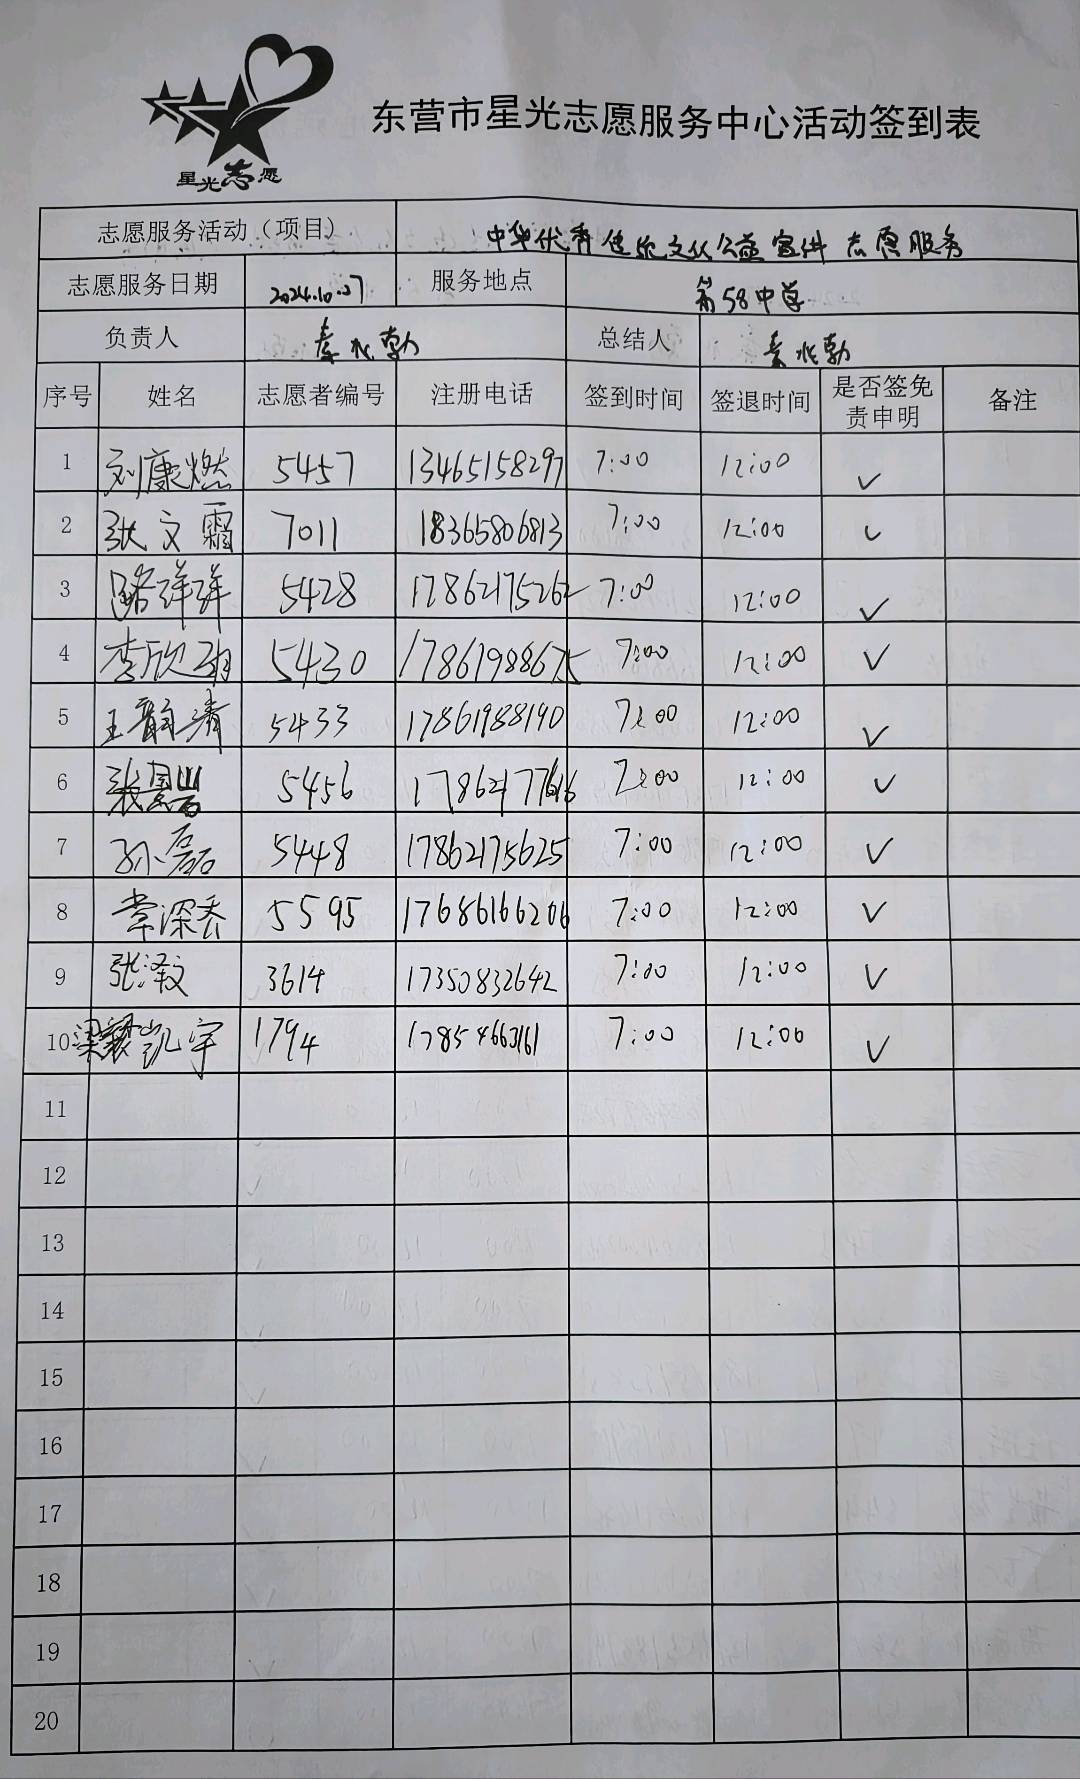 星光志愿
东营市星光志愿服务中心活动签到表
志愿服务活动（项目） 中华优秀传统文化公益宣传 志愿服务
志愿服务日期 2024.10.27 服务地点 第58中学
负责人 秦兆勃 总结人 秦兆勃
序号 姓名 志愿者编号 注册电话 签到时间 签退时间 是否签免责申明 备注
1 刘康燃 5457 13465158297 7:00 12:00 ✓
2 张文霜 7011 18365806813 7:00 12:00 ✓
3 路洋洋 5428 17862175262 7:00 12:00 ✓
4 李欣 5430 17861988675 7:00 12:00 ✓
5 王韵清 5433 17861988190 7:00 12:00 ✓
6 张 5456 17862177616 7:00 12:00 ✓
7 孙磊 5448 17862175625 7:00 12:00 ✓
8 常深秀 5595 17686166206 7:00 12:00 ✓
9 张泽文 3614 17350832642 7:00 12:00 ✓
10 梁凯宇 1794 17854663161 7:00 12:00 ✓
11
12
13
14
15
16
17
18
19
20